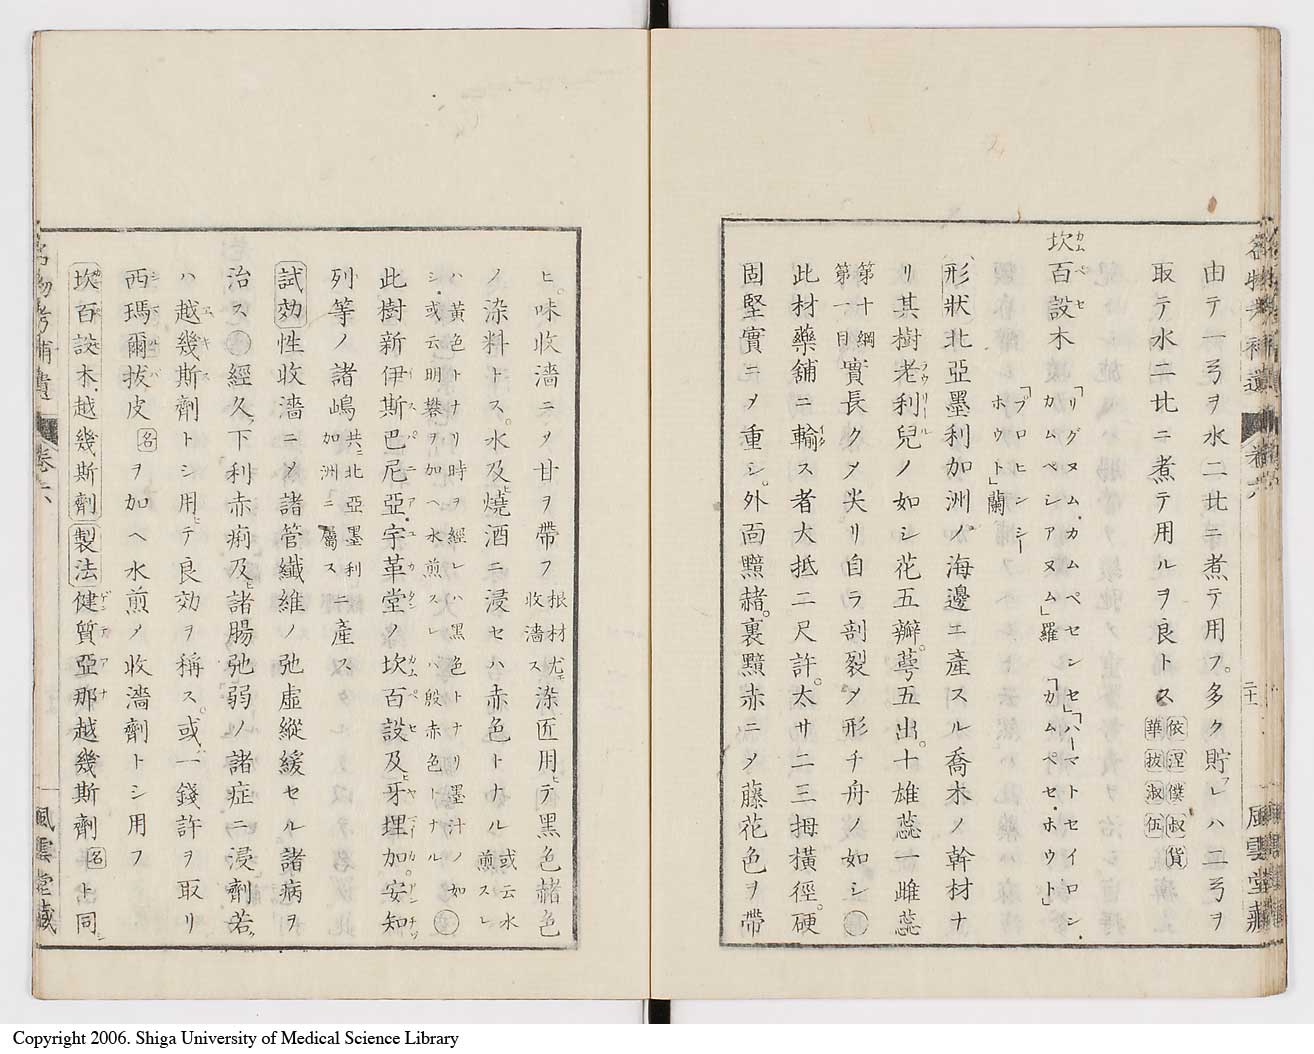 由テ一弓ヲ水二比ニ煮テ用フ。多ク貯フレハ二弓ヲ
取テ水二比ニ煮テ用ルヲ良トス 依涅僕叔貨 華拔淑伍
坎百設木 「リグヌム・カムペセンセ」「ハーマトセイロン・カムペシアヌム」羅「カムペセ・ホウト」「ブロヒンシーホウト」蘭
形狀 北亞墨利加洲ノ海邊ニ産スル喬木ノ幹材ナ
リ其樹老利兒ノ如シ花五瓣。蕚五出。十雄蕊一雌蕊
第十綱第一目 實長クメ尖リ自ラ剖裂メ形チ舟ノ如シ
此材藥舖ニ輸ス者大抵二尺許。太サ二三拇橫徑。硬
固堅實ニメ重シ。外面黯赭。裏黯赤ニメ藤花色ヲ帶
ヒ。味收濇ニメ甘ヲ帶フ 根材尤モ收濇ス 染匠用ヒテ黑色赭色
ノ染料トス。水及ヒ燒酒ニ浸セハ赤色トナル 或云水煎スレ
ハ黃色トナリ時ヲ經レハ黑色トナリ墨汁ノ如シ・或云明攀ヲ加ヘ水煎スレハ殷赤色トナル
此樹新伊斯巴尼亞・宇革堂ノ坎百設及ヒ牙埋加。安知
列等ノ諸嶋 共ニ北亞墨利加洲ニ屬ス ニ産ス
試効 性收濇ニメ諸管纖維ノ弛虛縱緩セル諸病ヲ
治ス 經久下利赤痢及ヒ諸腸弛弱ノ諸症ニ浸劑若ク
ハ越幾斯劑トシ用ヒテ良効ヲ稱ス。或ハ一錢許ヲ取リ
西瑪爾拔皮 名 ヲ加ヘ水煎メ收濇劑トシ用フ
坎百設木越幾斯劑 製法 健質亞那越幾斯劑 名 ト同シ
風雲堂藏
卷六
風雲堂藏